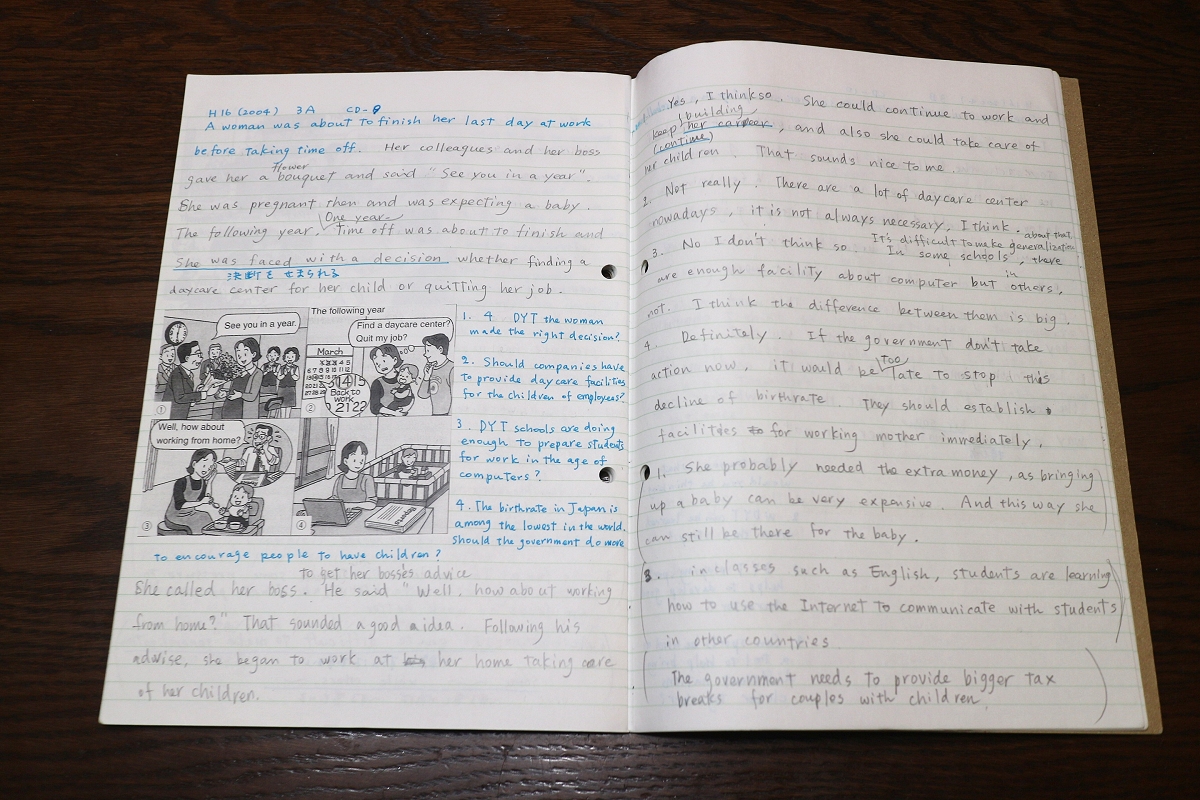 H16 (2004) 3A CD-8
A woman was about to finish her last day at work
before taking time off. Her colleagues and her boss
flower
gave her a bouquet and said "See you in a year".
She was pregnant then and was expecting a baby.
One year
The following year, time off was about to finish and
She was faced with a decision whether finding a
決断をせまられる
daycare center for her child or quitting her job.
See you in a year.
①
The following year
Find a daycare center?
Quit my job?
March
Back to
work
②
Well, how about
working from home?
③
④
1. 4 DYT the woman
made the right decision?
2. Should companies have
to provide daycare facilities
for the children of employees?
3. DYT schools are doing
enough to prepare students
for work in the age of
computers?
4. The birthrate in Japan is
among the lowest in the world.
should the government do more
to encourage people to have children?
to get her boss's advice
She called her boss. He said "Well, how about working
from home?" That sounded a good a idea. Following his
adwise, she began to work at her home taking care
of her children.
Yes, I think so. She could continue to work and
building
keep her career, and also she could take care of
(continue)
her children. That sounds nice to me.
2. Not really. There are a lot of daycare center
nowadays, it is not always necessary, I think.
about that
It's difficult to make generalization
3. No I don't think so. In some schools, there
are enough facility about computer but in others,
not. I think the difference between them is big.
4. Definitely. If the government don't take
too
action now, it would be late to stop this
decline of birthrate. They should establish
facilities for working mother immediately.
1. She probably needed the extra money, as bringing
up a baby can be very expensive. And this way she
can still be there for the baby.
3. in classes such as English, students are learning
how to use the Internet to communicate with students
in other countries
The government needs to provide bigger tax
breaks for couples with children.